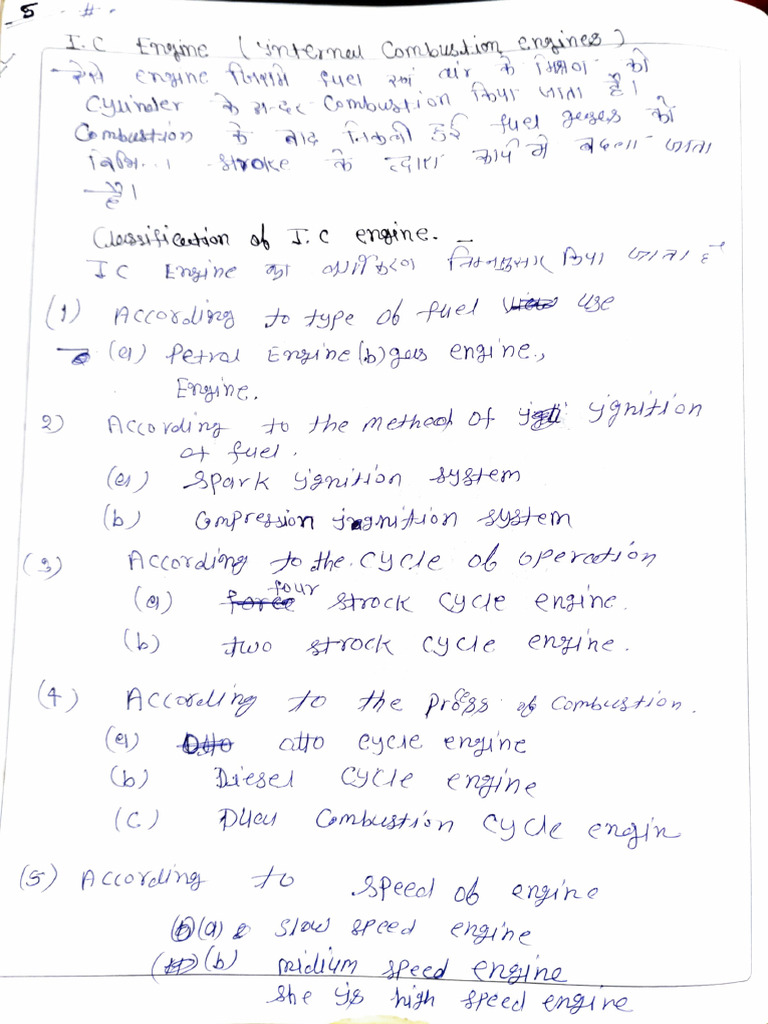 5 #
I.C Engine (internal Combustion engines)
ऐसे engine जिसमे fuel एवं air के मिश्रण को
Cylinder के अन्दर Combustion किया जाता है।
Combustion के बाद निकली हुई fuel geses को
stroke के द्वारा कार्य मे बदला जाता
है।
Classification of I.C engine.
IC Engine का वर्गीकरण निम्नानुसार किया जाता है
(1) According to type of fuel use
(a) Petrol Engine (b) gas engine.,
Engine.
2) According to the method of ignition
of fuel.
(a) spark ignition system
(b) Compression ignition system
(3) According to the cycle of operation
(a) four strock cycle engine.
(b) two strock cycle engine.
(4) According to the process of combustion.
(a) otto cycle engine
(b) Diesel cycle engine
(C) Dual Combustion cycle engin
(5) According to speed of engine
(a) slow speed engine
(b) midium speed engine
she is high speed engine